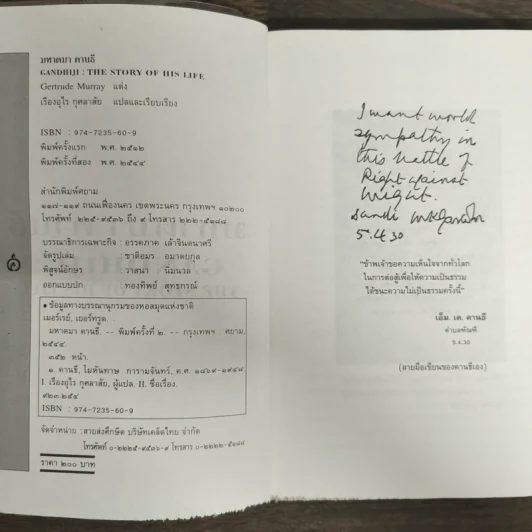 มหาตมา คานธี
GANDHIJI : THE STORY OF HIS LIFE
Gertrude Murray แต่ง
เรืองอุไร กุศลาสัย แปลและเรียบเรียง
ISBN : 974-7235-60-9
พิมพ์ครั้งแรก พ.ศ. ๒๕๑๒
พิมพ์ครั้งที่สอง พ.ศ. ๒๕๔๔
สำนักพิมพ์ศยาม
๑๑๗-๑๑๙ ถนนเฟื่องนคร เขตพระนคร กรุงเทพฯ ๑๐๒๐๐
โทรศัพท์ ๒๒๕-๙๕๓๖ ถึง ๙ โทรสาร ๒๒๒-๕๑๘๘
บรรณาธิการเฉพาะกิจ : อรรคภาค เล้าจินตนาศรี
จัดรูปเล่ม : ชาติอมร อมาตยกุล
พิสูจน์อักษร : วาสนา นิ่มนวล
ออกแบบปก : ทองทิพย์ สุทธกรณ์
• ข้อมูลทางบรรณานุกรมของหอสมุดแห่งชาติ
เมอร์เรย์, เยอร์ทรูด.
มหาตมา คานธี. -- พิมพ์ครั้งที่ ๒. -- กรุงเทพฯ : ศยาม,
๒๕๔๔.
๓๕๒ หน้า.
๑. คานธี, โมหันทาษ การามจันทร์, ค.ศ. ๑๘๖๙-๑๙๔๘.
I. เรืองอุไร กุศลาสัย, ผู้แปล. II. ชื่อเรื่อง.
๙๒๓.๒๕๔
ISBN : 974-7235-60-9
จัดจำหน่าย : สายส่งศึกษิต บริษัทเคล็ดไทย จำกัด
โทรศัพท์ ๐-๒๒๒๕-๙๕๓๖-๙ โทรสาร ๐-๒๒๒๒-๕๑๘๘
ราคา ๒๐๐ บาท
I want world
sympathy in
this battle of
Right against
Might.
Dandi MKGandhi
5.4.30
“ข้าพเจ้าขอความเห็นใจจากทั่วโลก
ในการต่อสู้เพื่อให้ความเป็นธรรม
ได้ชนะความไม่เป็นธรรมครั้งนี้”
เอ็ม. เค. คานธี
ตำบลทัณฑี
5.4.30
(ลายมือเขียนของคานธีเอง)